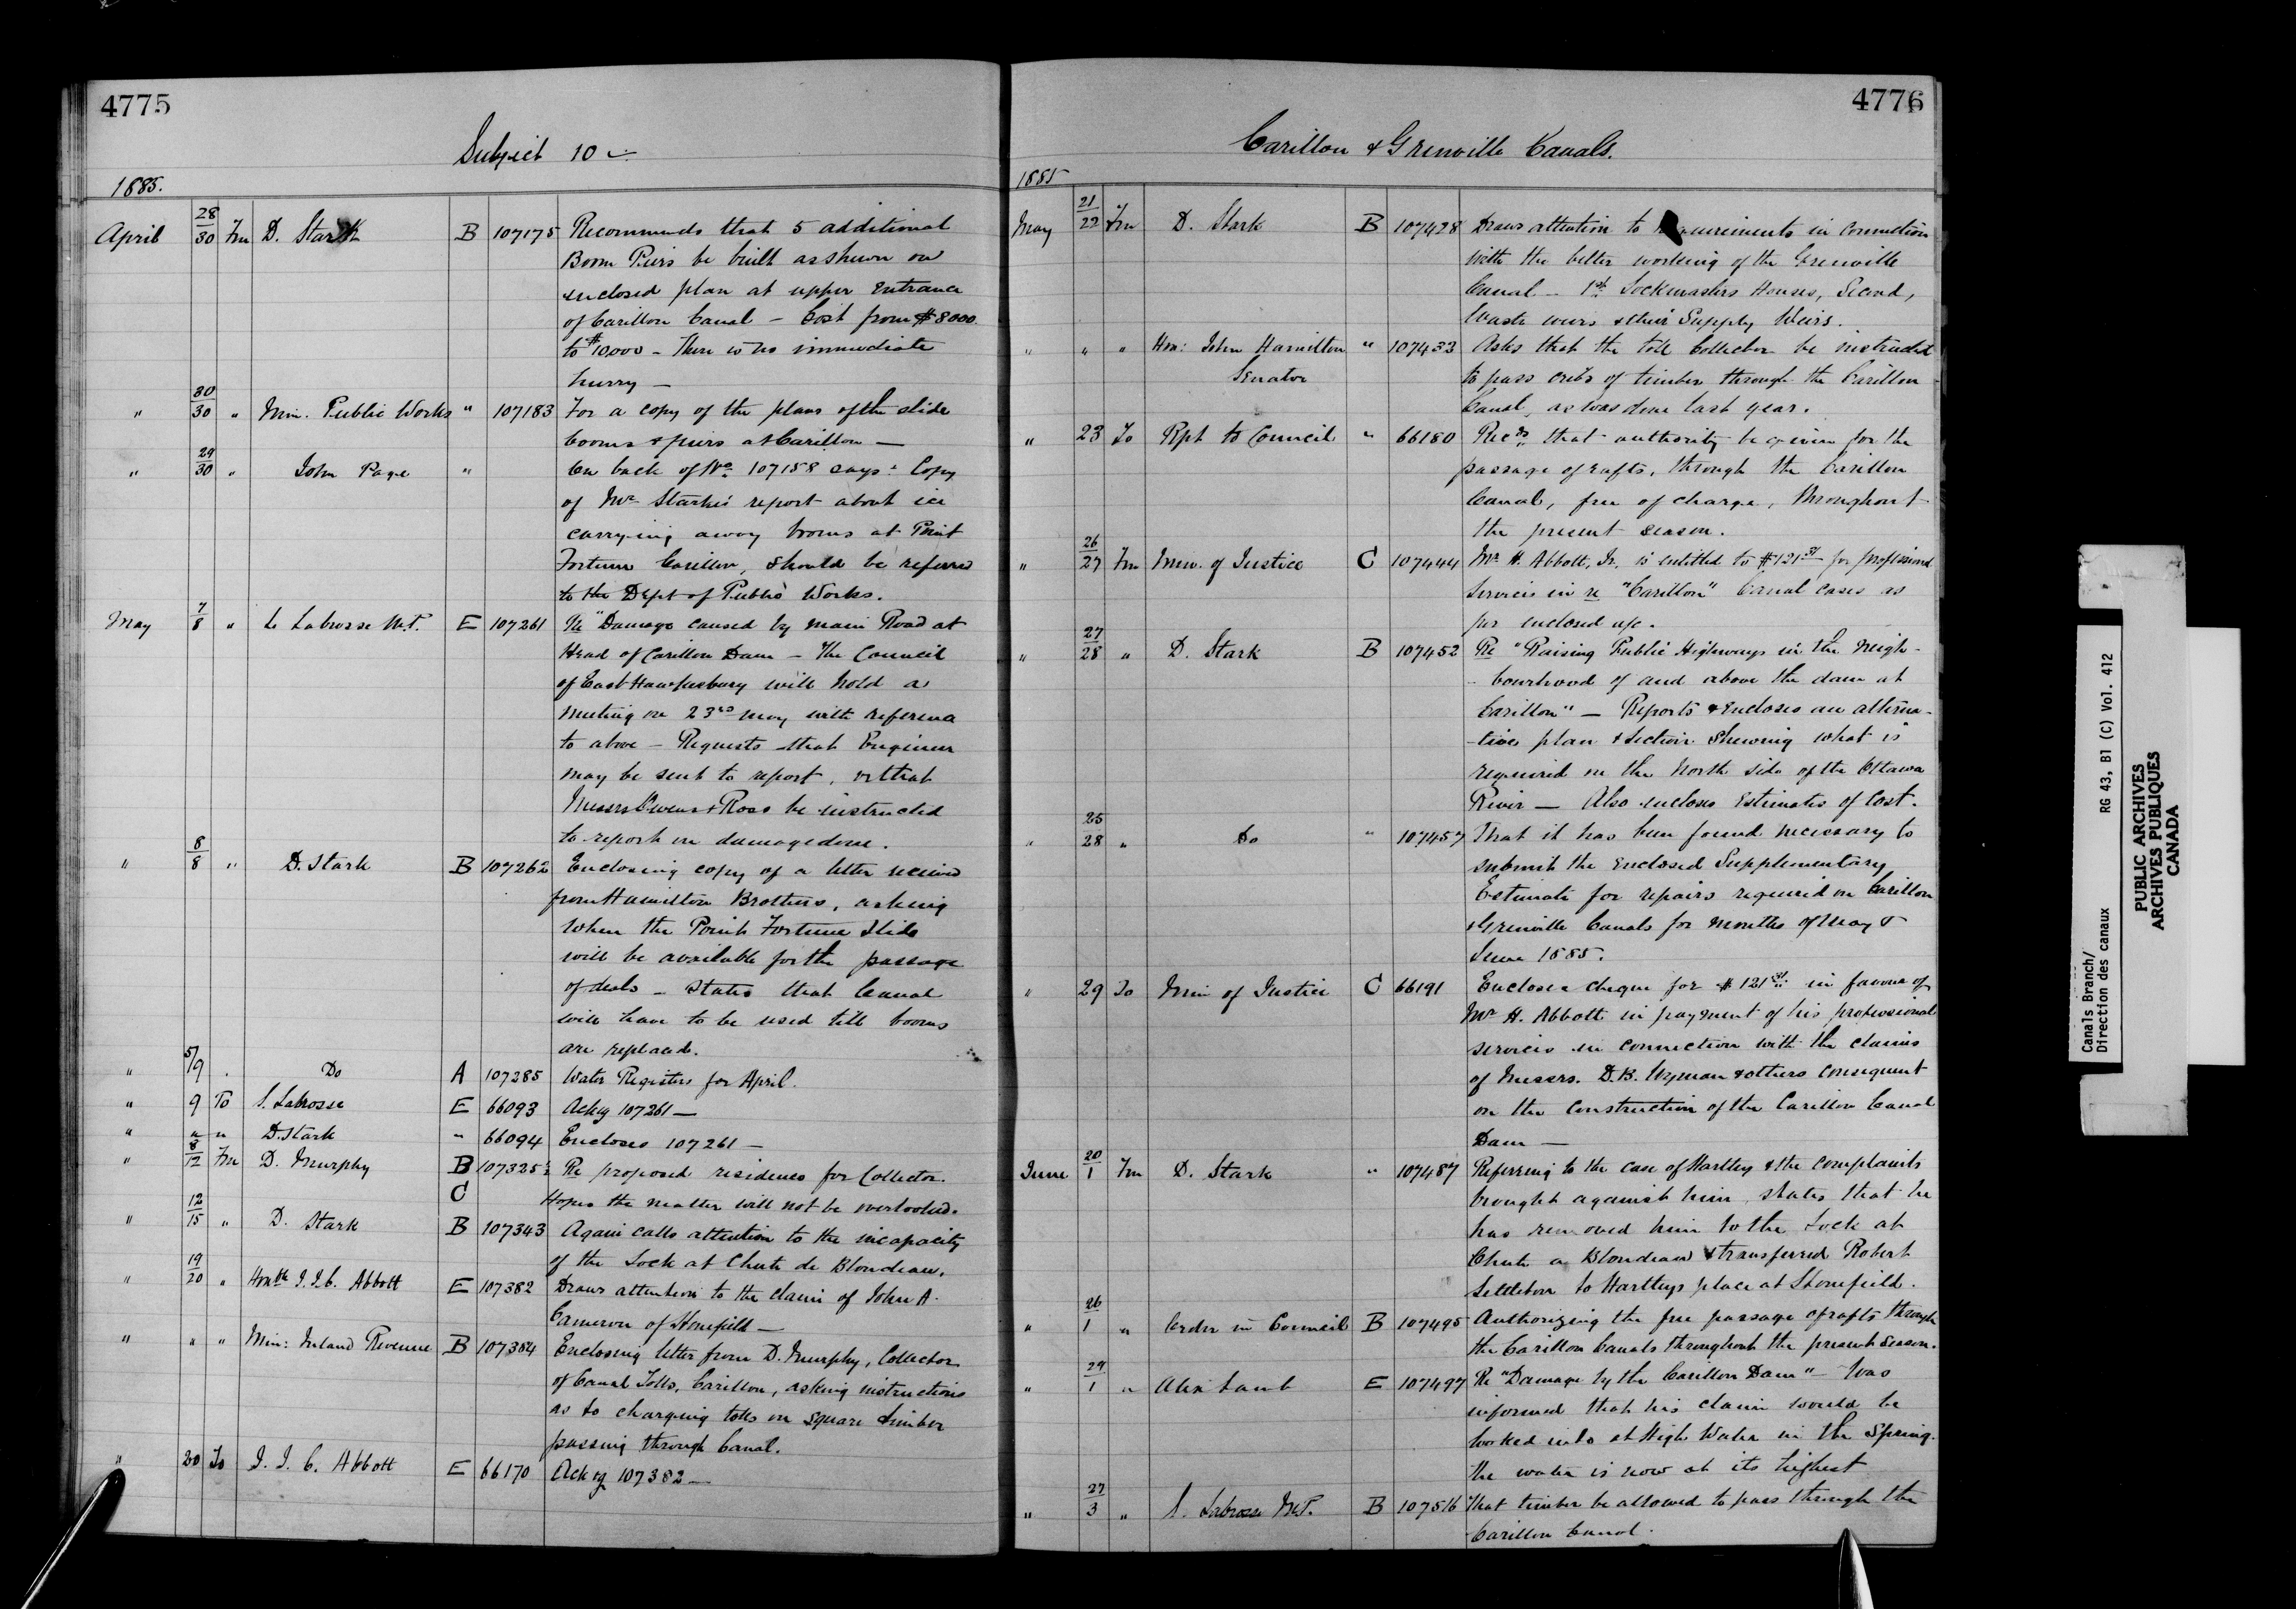 4775
Subject 10
1885.
April 28/30 Fm D. Stark B 107175 Recommends that 5 additional
Boom Piers be built as shewn on
enclosed plan at upper Entrance
of Carillon Canal – Cost from $8000
to $10,000 – There is no immediate
hurry –
" 30/30 " Min. Public Works " 107183 For a copy of the plans of the slide
booms & piers at Carillon –
" 29/30 " John Page " On back of No 107158 says: Copy
of Mr Stark's report about ice
carrying away booms at Point
Fortune Carillon, should be referred
to the Dept of Public Works.
May 7/8 " Labrosse M.P. E 107261 Re "Damage caused by main Road at
Head of Carillon Dam – The Council
of East Hawkesbury will hold a
meeting on 23rd May with reference
to above – Requests that Engineer
may be sent to report, & that
Messrs Owens & Ross be instructed
to report on damage done.
" 8/8 " D. Stark B 107262 Enclosing copy of a letter received
from Hamilton Brothers, asking
when the Point Fortune Slide
will be available for the passage
of deals – States that Canal
will have to be used till booms
are replaced.
" 5/9 . Do A 107285 Water Registers for April.
" 9 To S. Labrosse E 66093 Ackg 107261 –
" " " D. Stark " 66094 Encloses 107261 –
" 8/12 Fm D. Murphy B 107325½ Re proposed residence for Collector.
C Hopes the matter will not be overlooked.
" 12/15 " D. Stark B 107343 Again calls attention to the incapacity
of the Lock at Chute de Blondeau.
" 19/20 " Honble J.J.C. Abbott E 107382 Draws attention to the claim of John A.
Cameron of Stonefield –
" " " Min: Inland Revenue B 107384 Enclosing letter from D. Murphy, Collector
of Canal Tolls, Carillon, asking instructions
as to charging tolls on square timber
passing through Canal.
" 20 To J. J. C. Abbott E 66170 Ackg 107382 –
4776
Carillon & Grenville Canals.
1885
May 21/22 Fm D. Stark B 107428 Draws attention to requirements in connection
with the better working of the Grenville
Canal – 1st Lockmasters Houses, Second,
Waste weirs & their Supply Weirs.
" " " Hon: John Hamilton " 107433 Asks that the toll Collector be instructed
Senator to pass cribs of timber through the Carillon
Canal, as was done last year.
" 23 To Rpt to Council " 66180 Recds that authority be given for the
passage of rafts, through the Carillon
Canal, free of charge, throughout
the present season.
" 26/27 Fm Min. of Justice C 107444 Mr H. Abbott, Jr. is entitled to $121 31 for professional
services in re "Carillon" Canal cases as
per enclosed a/c.
" 27/28 " D. Stark B 107452 Re "Raising Public Highways in the neigh-
- bourhood of and above the dam at
Carillon" – Reports & encloses an alterna-
-tive plan & section shewing what is
required on the North side of the Ottawa
River – Also encloses Estimates of Cost.
" 25/28 " Do " 107457 That it has been found necessary to
submit the Enclosed Supplementary
Estimate for repairs required on Carillon
& Grenville Canals for months of May &
June 1885.
" 29 To Min of Justice C 66191 Encloses cheque for $121 31 in favour of
Mr H. Abbott in payment of his professional
services in connection with the claims
of Messrs. D.B. Wyman & others consequent
on the construction of the Carillon Canal
Dam –
June 20/1 Fm D. Stark " 107487 Referring to the case of Hartley & the complaints
brought against him, states that he
has removed him to the Lock at
Chute a Blondeau & transferred Robert
Settleton to Hartleys place at Stonefield.
" 26/1 " Order in Council B 107495 Authorizing the free passage of rafts through
the Carillon Canals throughout the present season.
" 29/1 " Alex Lamb E 107497 Re "Damage by the Carillon Dam" – Was
informed that his claim would be
looked into at High Water in the Spring.
The water is now at its highest
" 27/3 " S. Labrosse M.P. B 107516 That timber be allowed to pass through the
Carillon Canal.
Canals Branch/ RG 43, B1 (C) Vol. 412
Direction des canaux
PUBLIC ARCHIVES
ARCHIVES PUBLIQUES
CANADA